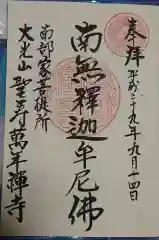 奉拝
平成二十九年九月十四日
南無釋迦牟尼佛
南部家菩提所
大光山聖寿萬年禅寺